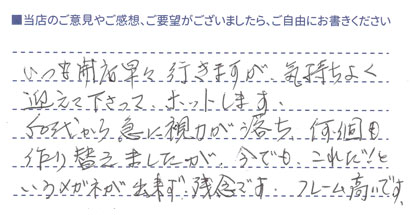 ■当店のご意見やご感想、ご要望がございましたら、ご自由にお書きください
いつも開店早々行きますが、気持ちよく
迎えて下さって、ホットします、
50代から急に視力が落ち、何個も
作り替えましたがが、今でも、これだ!と
いうメガネが出来ず、残念です、フレーム高いです。